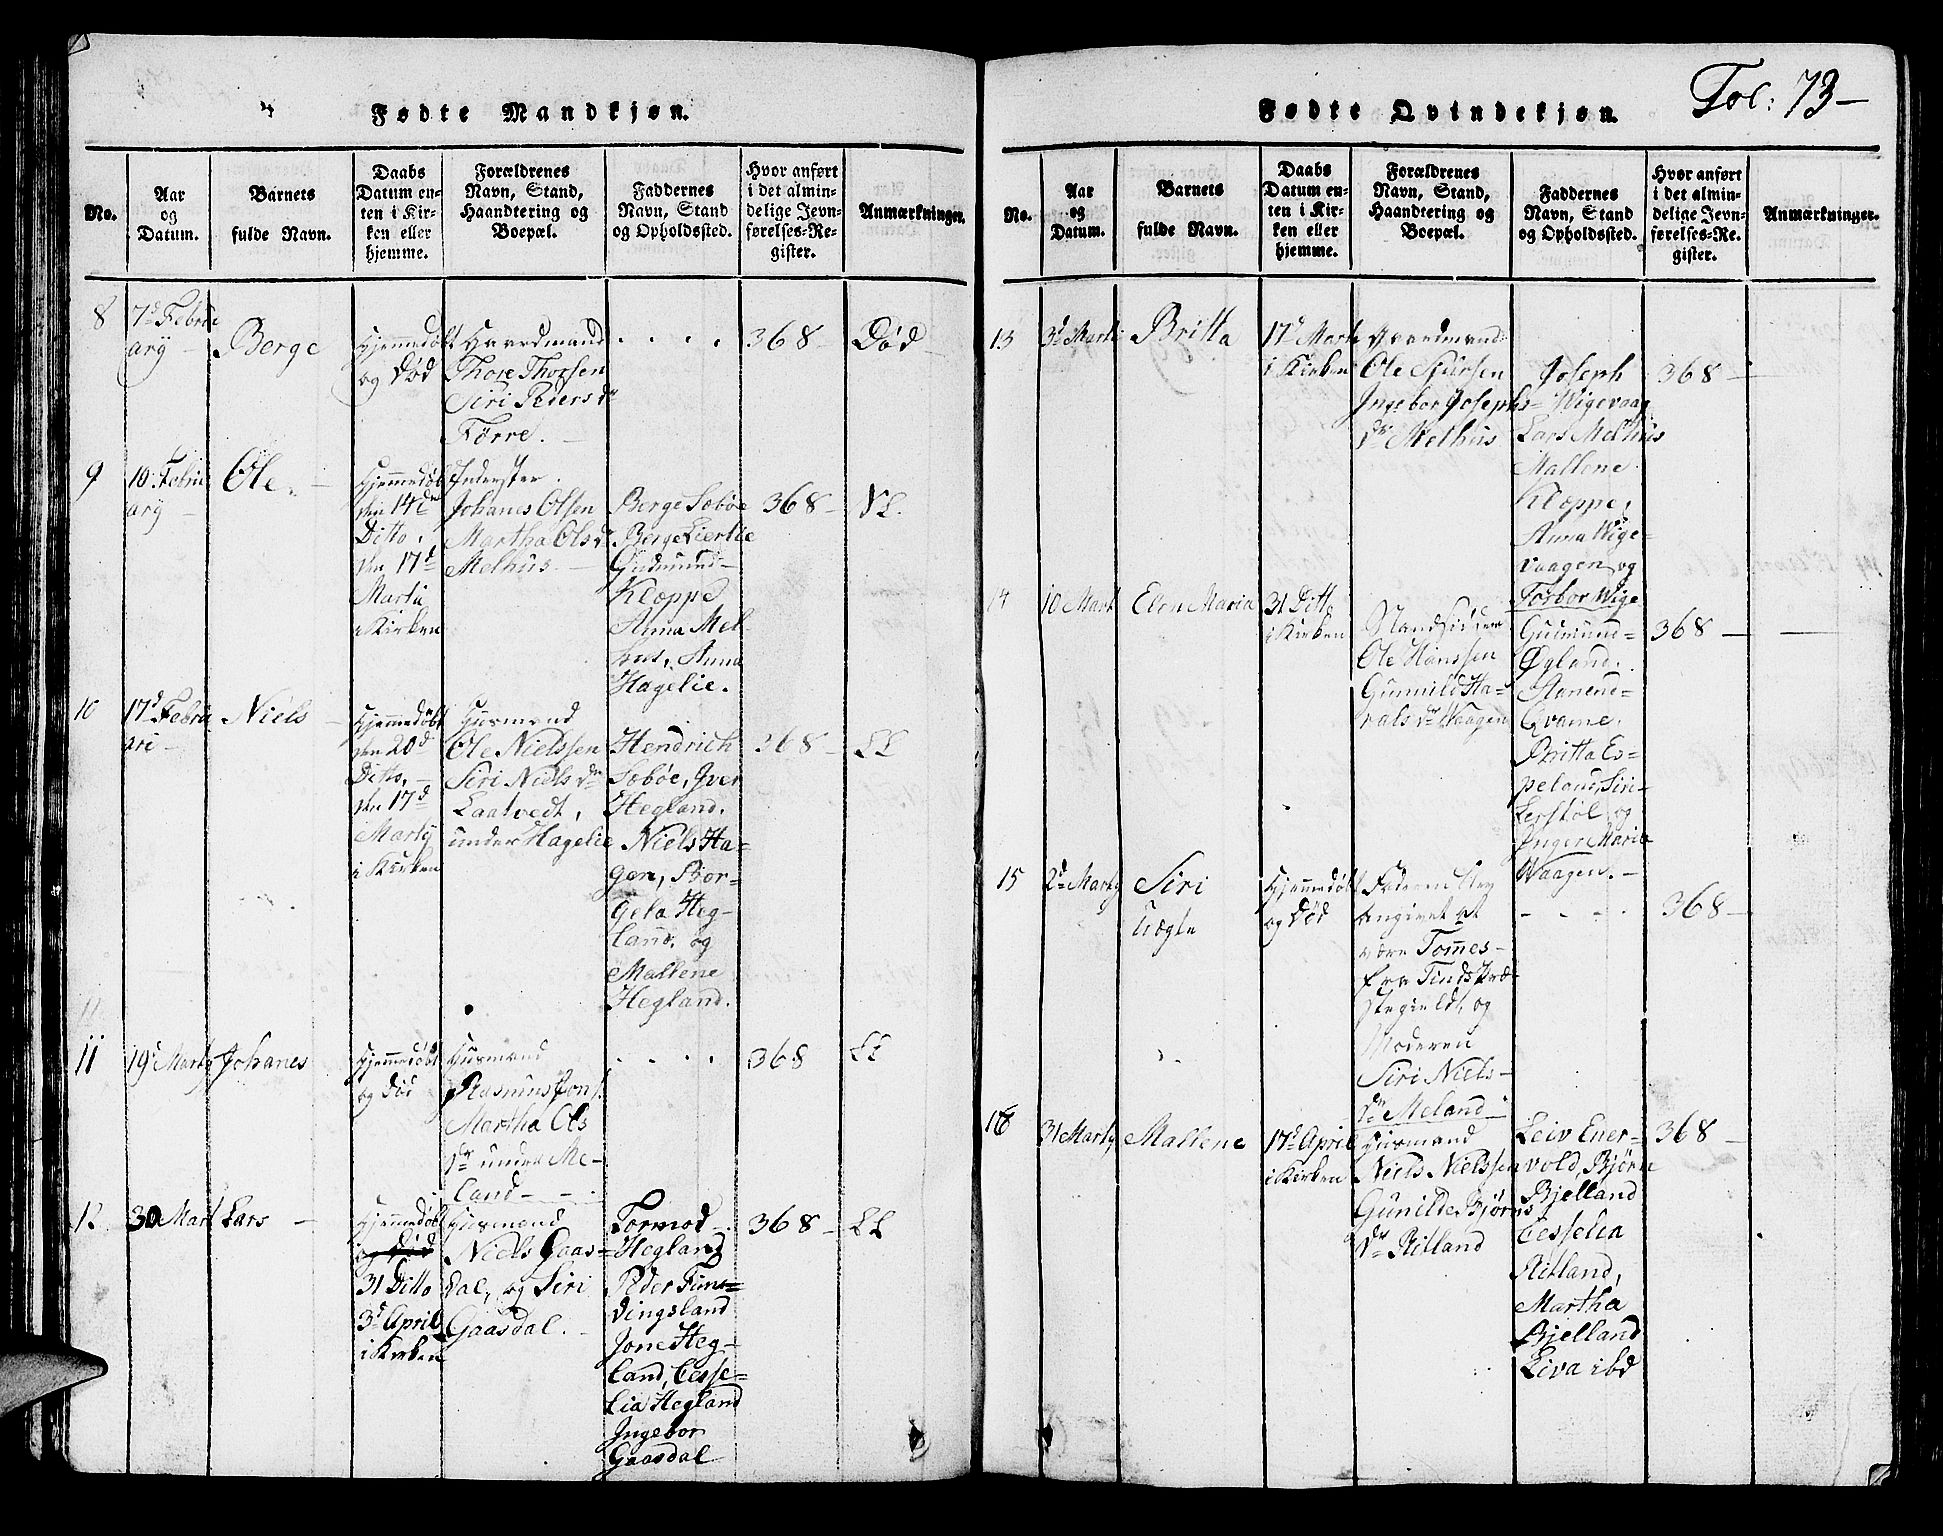 Fødte Mandkjøn.
No.
Aar
og
Datum.
Barnets
fulde Navn.
Daabs
Datum en-
ten i Kir-
ken eller
hjemme.
Forældrenes
Navn, Stand,
Haandtering og
Boepæl.
Faddernes
Navn, Stand
og Opholdssted.
Hvor anført
i det almin-
delige Jevn-
førelses-Re-
gister.
Anmærkninger.
8
7d Febru
ary
Berge
Hjemmedøbt
og død
Gaardmand
Thore Thorsen
Siri Peders dr
Førre.
368
Død
9
10 Febru
ary
Ole.
Hjemmedøbt
den 14de
Ditto,
den 17d
Marti
i Kirken
Inderster
Johanes Olsen
Martha Ols dr
Melhus.
Berge Sebøe
Berge Liertie
Gudmund
Kloppe
Anna Mel
hus, Anna
Hagelie.
368
10
17d Febru
ari
Niels
Hjemmedøbt
den 20d
Ditto,
den 17d
Marty
i Kirken
Huusmand
Ole Nielssen
Siri Niels dr
Laatvedt,
under Hagelie
Hendrich
Søbøe, Iver
Hegland.
Niels Ha-
gen, Bor-
gela Heg-
land, og
Mallene
Hegland.
368
11
19d Marty
Johanes
Hjemmedøbt
og død
Huusmand
Rasmus Jons.
Martha Ols
dr under Me-
land
368
12
30 Mart
Lars
Hjemmedøbt
og død
31 Ditto
3d April
i Kirken
Huusmand
Niels Gaas-
dal, og Siri
Gaasdal.
Tormod
Hegland
Peder Tim-
dingsland
Jone Heg-
land, Cesse-
lia Hegland
Ingebor
Gaasdal
368
Fødte Qvindekjøn.
Fol: 73
No.
Aar
og
Datum.
Barnets
fulde Navn.
Daabs
Datum en-
ten i Kir-
ken eller
hjemme.
Forældrenes
Navn, Stand,
Haandtering og
Boepæl.
Faddernes
Navn, Stand
og Opholdssted.
Hvor anført
i det almin-
delige Jevn-
førelses-Re-
gister.
Anmærkninger.
13
3d Marti
Britta
17d Marti
i Kirken
Gaardmand
Ole Sjursen
Ingebor Josephs
dr Melhus
Joseph
Wigevaag
Lars Melhus
Mallene
Kloppe,
Anna Wige-
vaagen, og
Torbor Wige
368
14
10 Mart
Elen Maria
31 Ditto
i Kirken
Strandsidder
Ole Hanssen
Gunnild Ha-
ralsdr Waagen
Gudmund
Øgland.
Aanend
Qvame.
Britta Es-
peland, Siri
Lerstøl, og
Inger Maria
Waagen.
368
15
2d Marty
Siri
Uægte
Hjemmedøbt
og død
Faderen bley
angivet at
være Tomes
fra Tinds Præ-
stegieldt, og
Moderen
Siri Niels-
dr Meland
368
16
31 Marty
Mallene
17d April
i Kirken
Huusmand
Niels Nielssen
Gunilde Bjørns
dr Ritland
Leiv Ener-
vold, Bjørn
Bjelland
Cesselia
Ritland,
Martha
Bjelland
Liva ibd
368